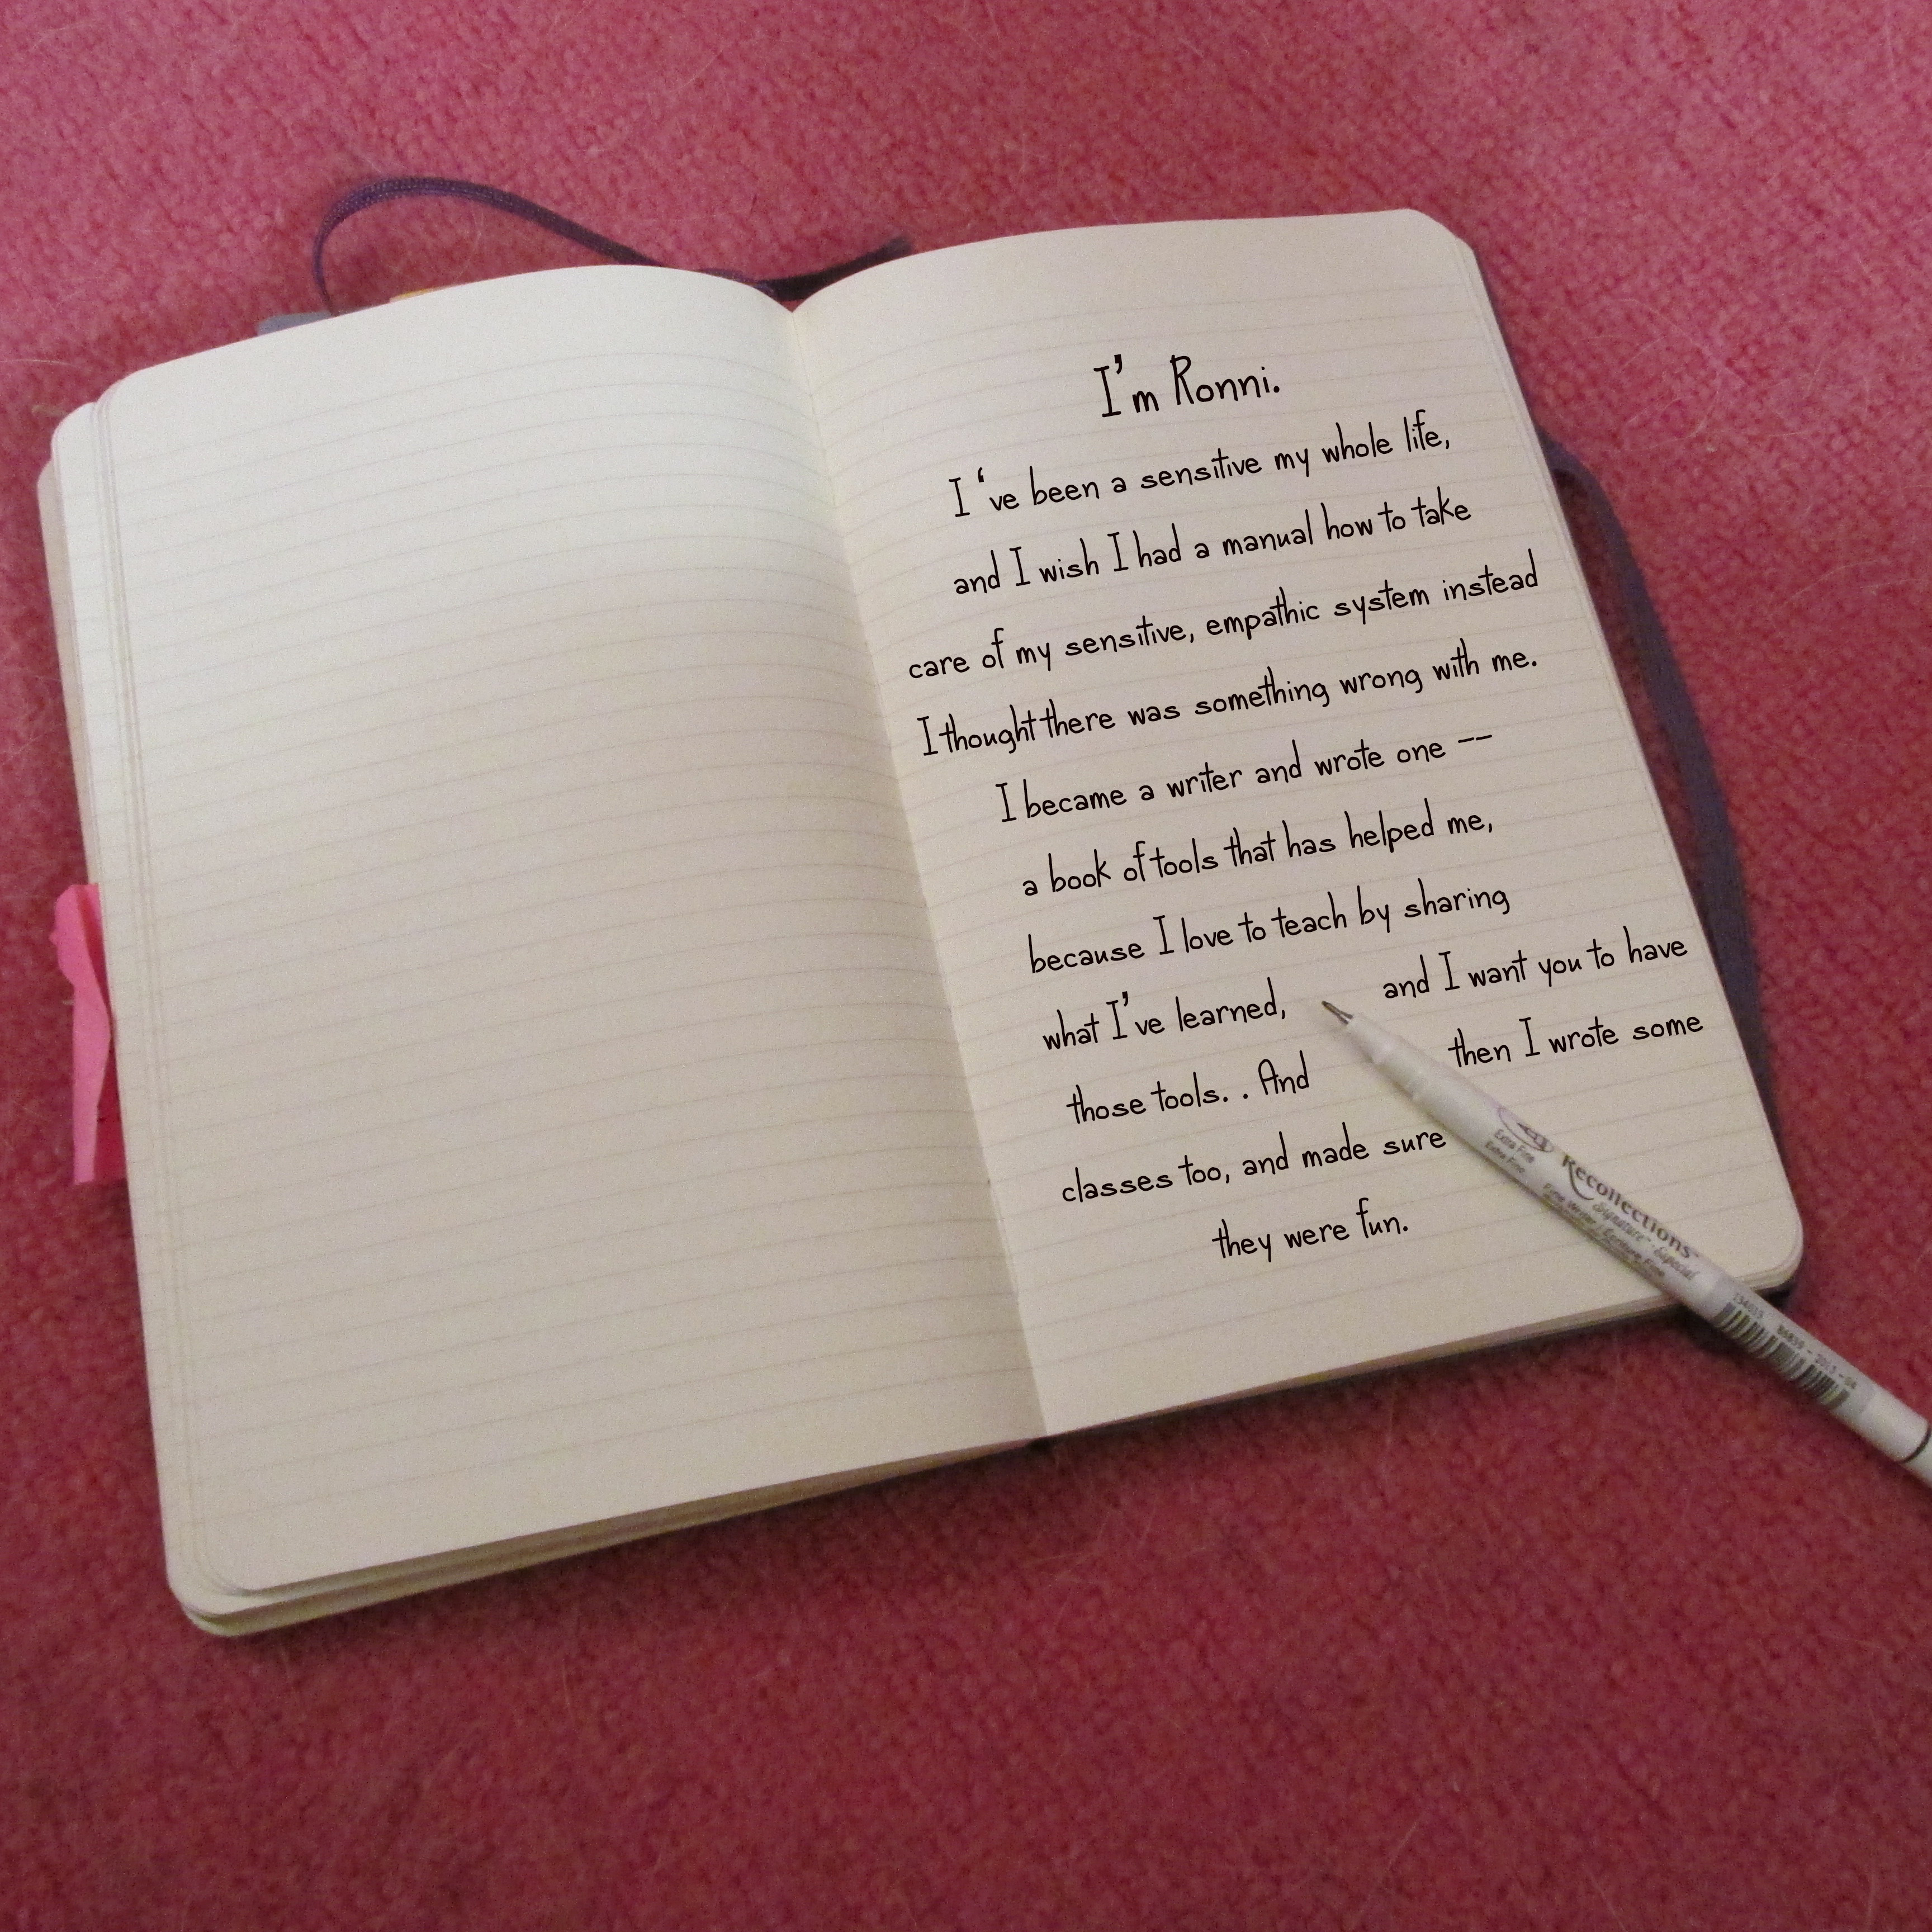 I'm Ronni.
I 've been a sensitive my whole life,
and I wish I had a manual how to take
care of my sensitive, empathic system instead
I thought there was something wrong with me.
I became a writer and wrote one --
a book of tools that has helped me,
because I love to teach by sharing
what I've learned, and I want you to have
those tools. . And then I wrote some
classes too, and made sure
they were fun.
Extra Fine
Extra Fine
Recollections
Signature